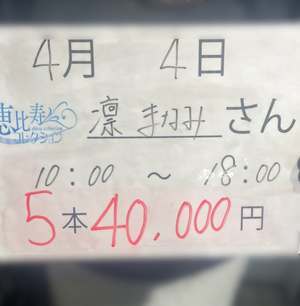 4月 4日
恵比寿
コレクション
凛 まなみ さん
10:00 ～ 18:00
5本40,000円